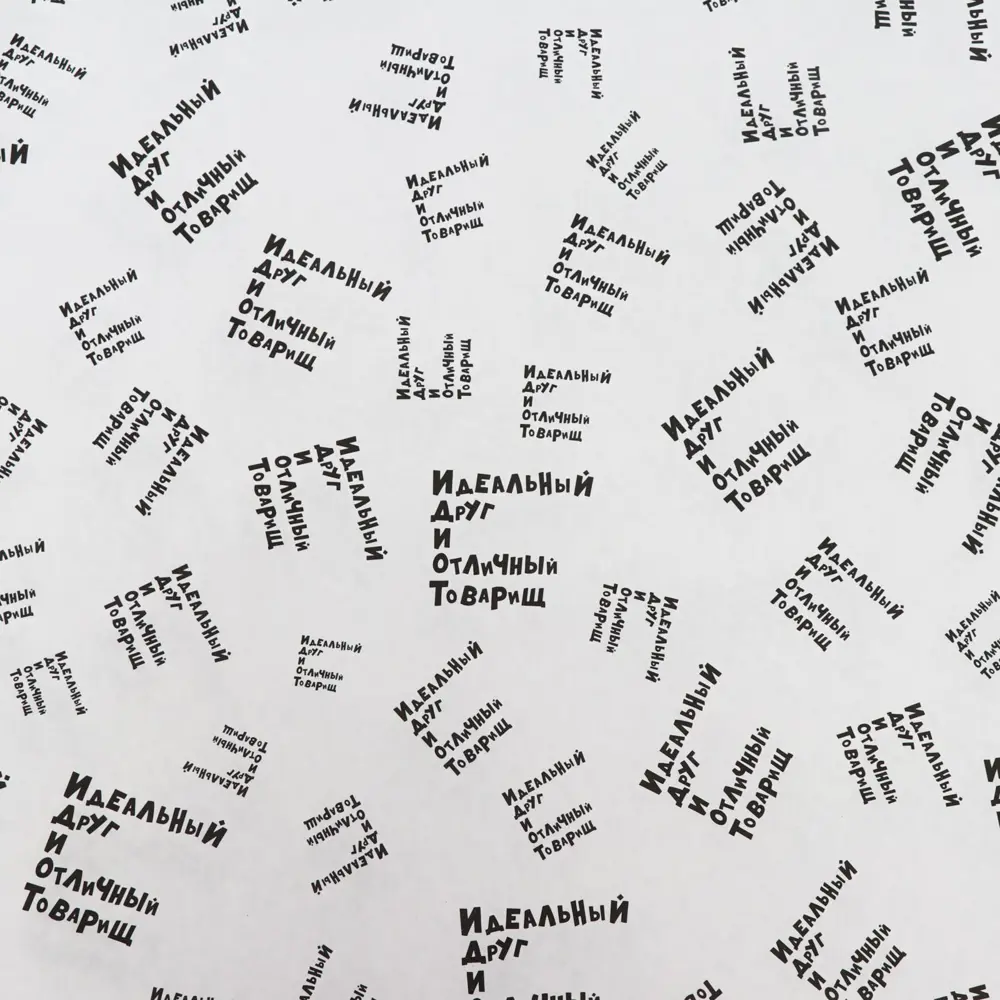 Идеальный
Друг
и
Отличный
Товарищ
Идеальный
Друг
и
Отличный
Товарищ
Идеальный
Друг
и
Отличный
Товарищ
Идеальный
Друг
и
Отличный
Товарищ
Идеальный
Друг
и
Отличный
Товарищ
Идеальный
Друг
и
Отличный
Товарищ
Идеальный
Друг
и
Отличный
Товарищ
Идеальный
Друг
и
Отличный
Товарищ
Идеальный
Друг
и
Отличный
Товарищ
Идеальный
Друг
и
Отличный
Товарищ
Идеальный
Друг
и
Отличный
Товарищ
Идеальный
Друг
и
Отличный
Товарищ
Идеальный
Друг
и
Отличный
Товарищ
Идеальный
Друг
и
Отличный
Товарищ
Идеальный
Друг
и
Отличный
Товарищ
Идеальный
Друг
и
Отличный
Товарищ
Идеальный
Друг
и
Отличный
Товарищ
Идеальный
Друг
и
Отличный
Товарищ
Идеальный
Друг
и
Отличный
Товарищ
Идеальный
Друг
и
Отличный
Товарищ
Идеальный
Друг
и
Отличный
Товарищ
Идеальный
Друг
и
Отличный
Товарищ
Идеальный
Друг
и
Отличный
Товарищ
Идеальный
Друг
и
Отличный
Товарищ
Идеальный
Друг
и
Отличный
Товарищ
Идеальный
Друг
и
Отличный
Товарищ
Идеальный
Друг
и
Отличный
Товарищ
Идеальный
Друг
и
Отличный
Товарищ
Идеальный
Друг
и
Отличный
Товарищ
Идеальный
Друг
и
Отличный
Товарищ
Идеальный
Друг
и